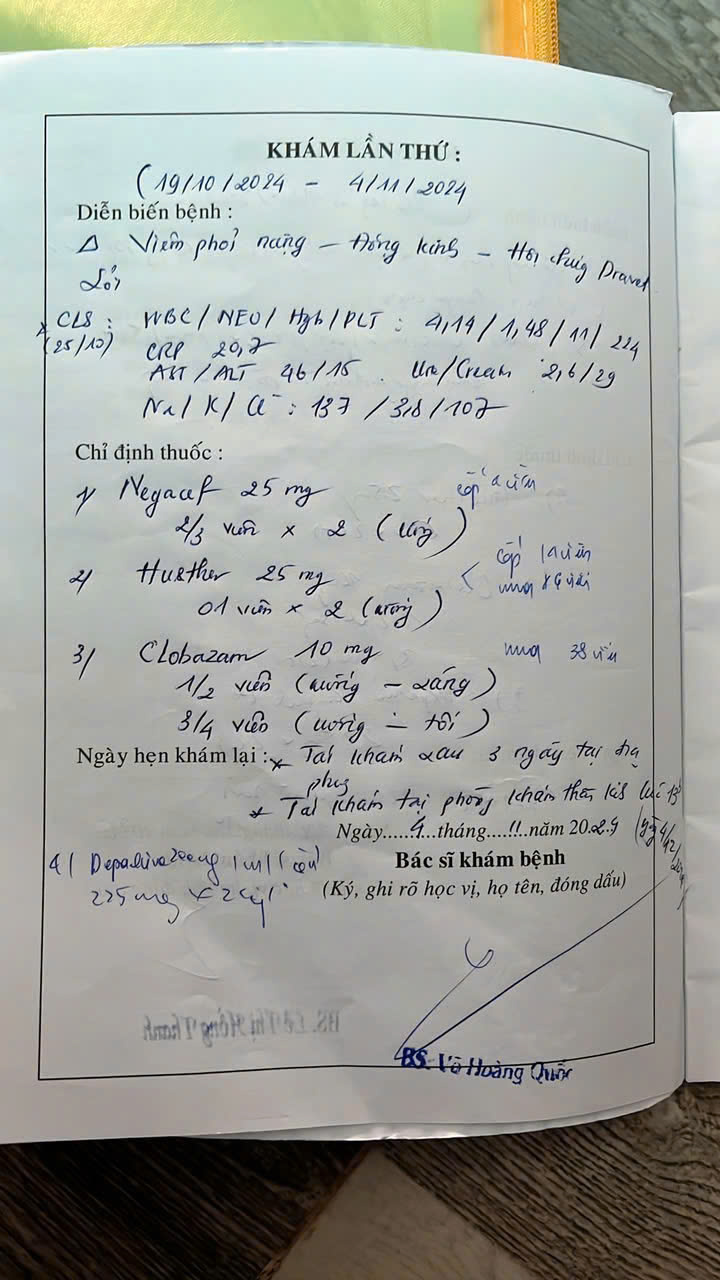 KHÁM LẦN THỨ :
(19/10/2024 - 4/11/2024
Diễn biến bệnh :
Δ Viêm phổi nặng – Động kinh – Hội chứng Dravet
* CLS : WBC / NEU / Hgb / PLT : 4,14 / 1,48 / 11 / 224
(25/10) CRP 20,7
AST / ALT 46 / 15 . Ure/Crea 2,6 / 29
Na / K / Cl⁻ : 137 / 3,8 / 107
Chỉ định thuốc :
1/ Negacef 25 mg cấp viên
2/3 viên x 2 (uống)
2/ Husther 25 mg cấp viên
01 viên x 2 (uống) mua viên
3/ Clobazam 10 mg mua 38 viên
1/2 viên (uống – sáng)
3/4 viên (uống – tối)
Ngày hẹn khám lại : * Tái khám sau 3 ngày tại địa
phương
* Tái khám tại phòng khám thần kinh
Ngày.....4...tháng....11..năm 20.24
4/ 200mg/ml
Bác sĩ khám bệnh
225mg x 2
(Ký, ghi rõ học vị, họ tên, đóng dấu)
BS. Lê Thị Hồng Thanh
BS. Võ Hoàng Quốc